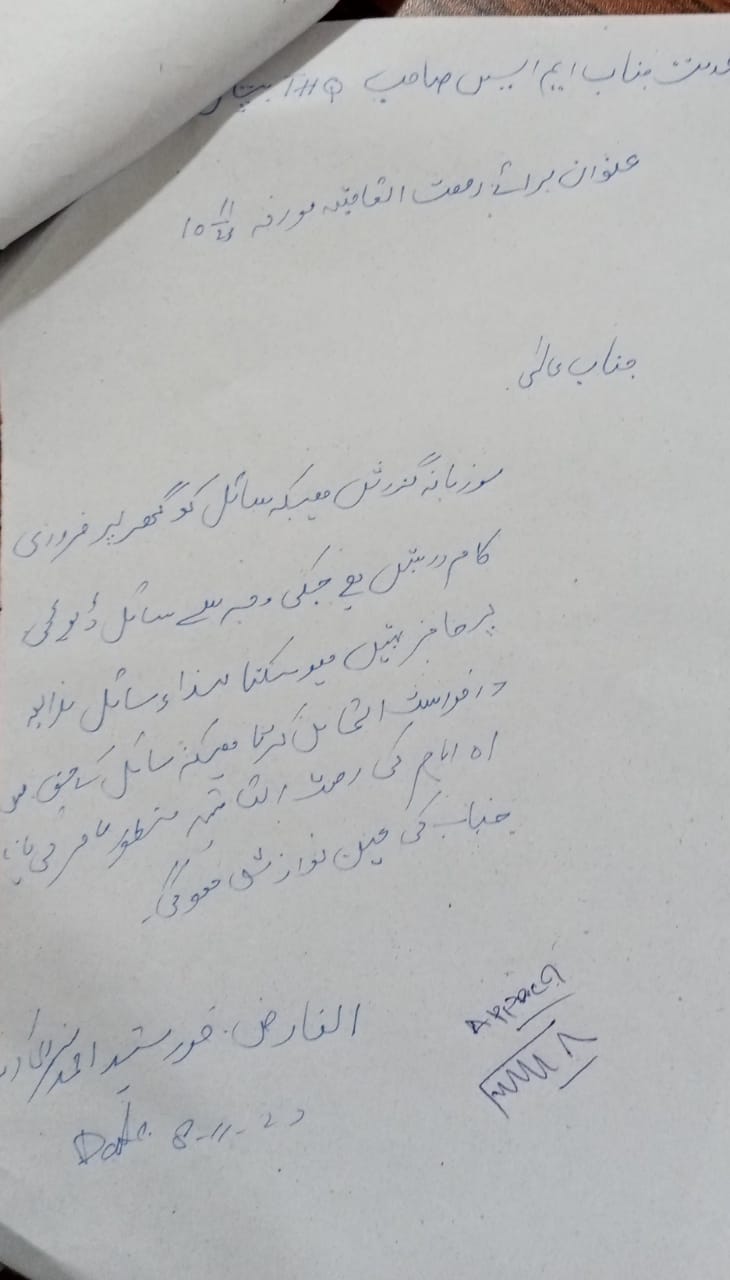 جناب ایم ایس صاحب THQ
عنوان برائے رخصت اتفاقیہ مورخہ 10/11
جناب عالی
موزبانہ گزارش ہیکہ سائل کو گھر پر ضروری
کام درپیش ہے جسکی وجہ سے سائل ڈیوٹی
پر حاضر نہیں ہوسکتا لہذا سائل بذریعہ
درخواست التماس کرتا ہیکہ سائل کے حق میں
ایام کی رخصت اتفاقیہ منظور فرمائی
جناب کی عین نوازش ہوگی۔
العارض۔ خورشید احمد
Date. 8-11-23